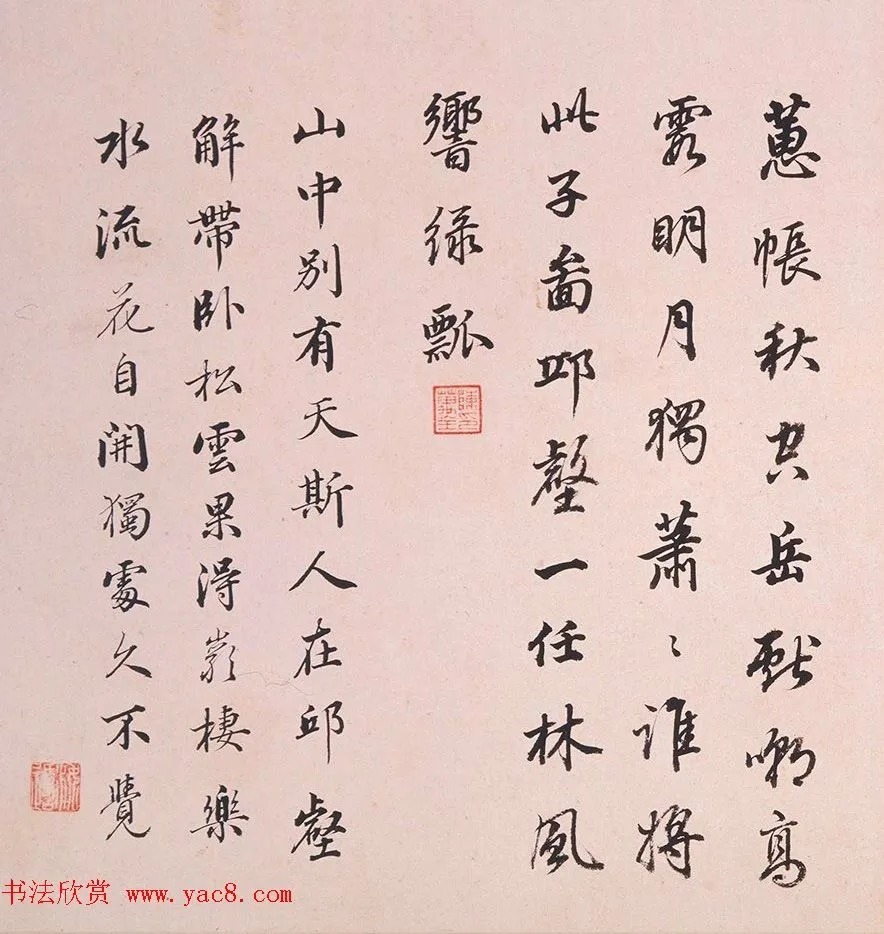 蕙帳秋空岳獻嘲高
霞明月獨蕭〻誰將
此子畫邱壑一任林風
響綠瓢
山中別有天斯人在邱壑
解帶臥松雲果得巖棲樂
水流花自開獨處久不覺
书法欣赏 www.yac8.com